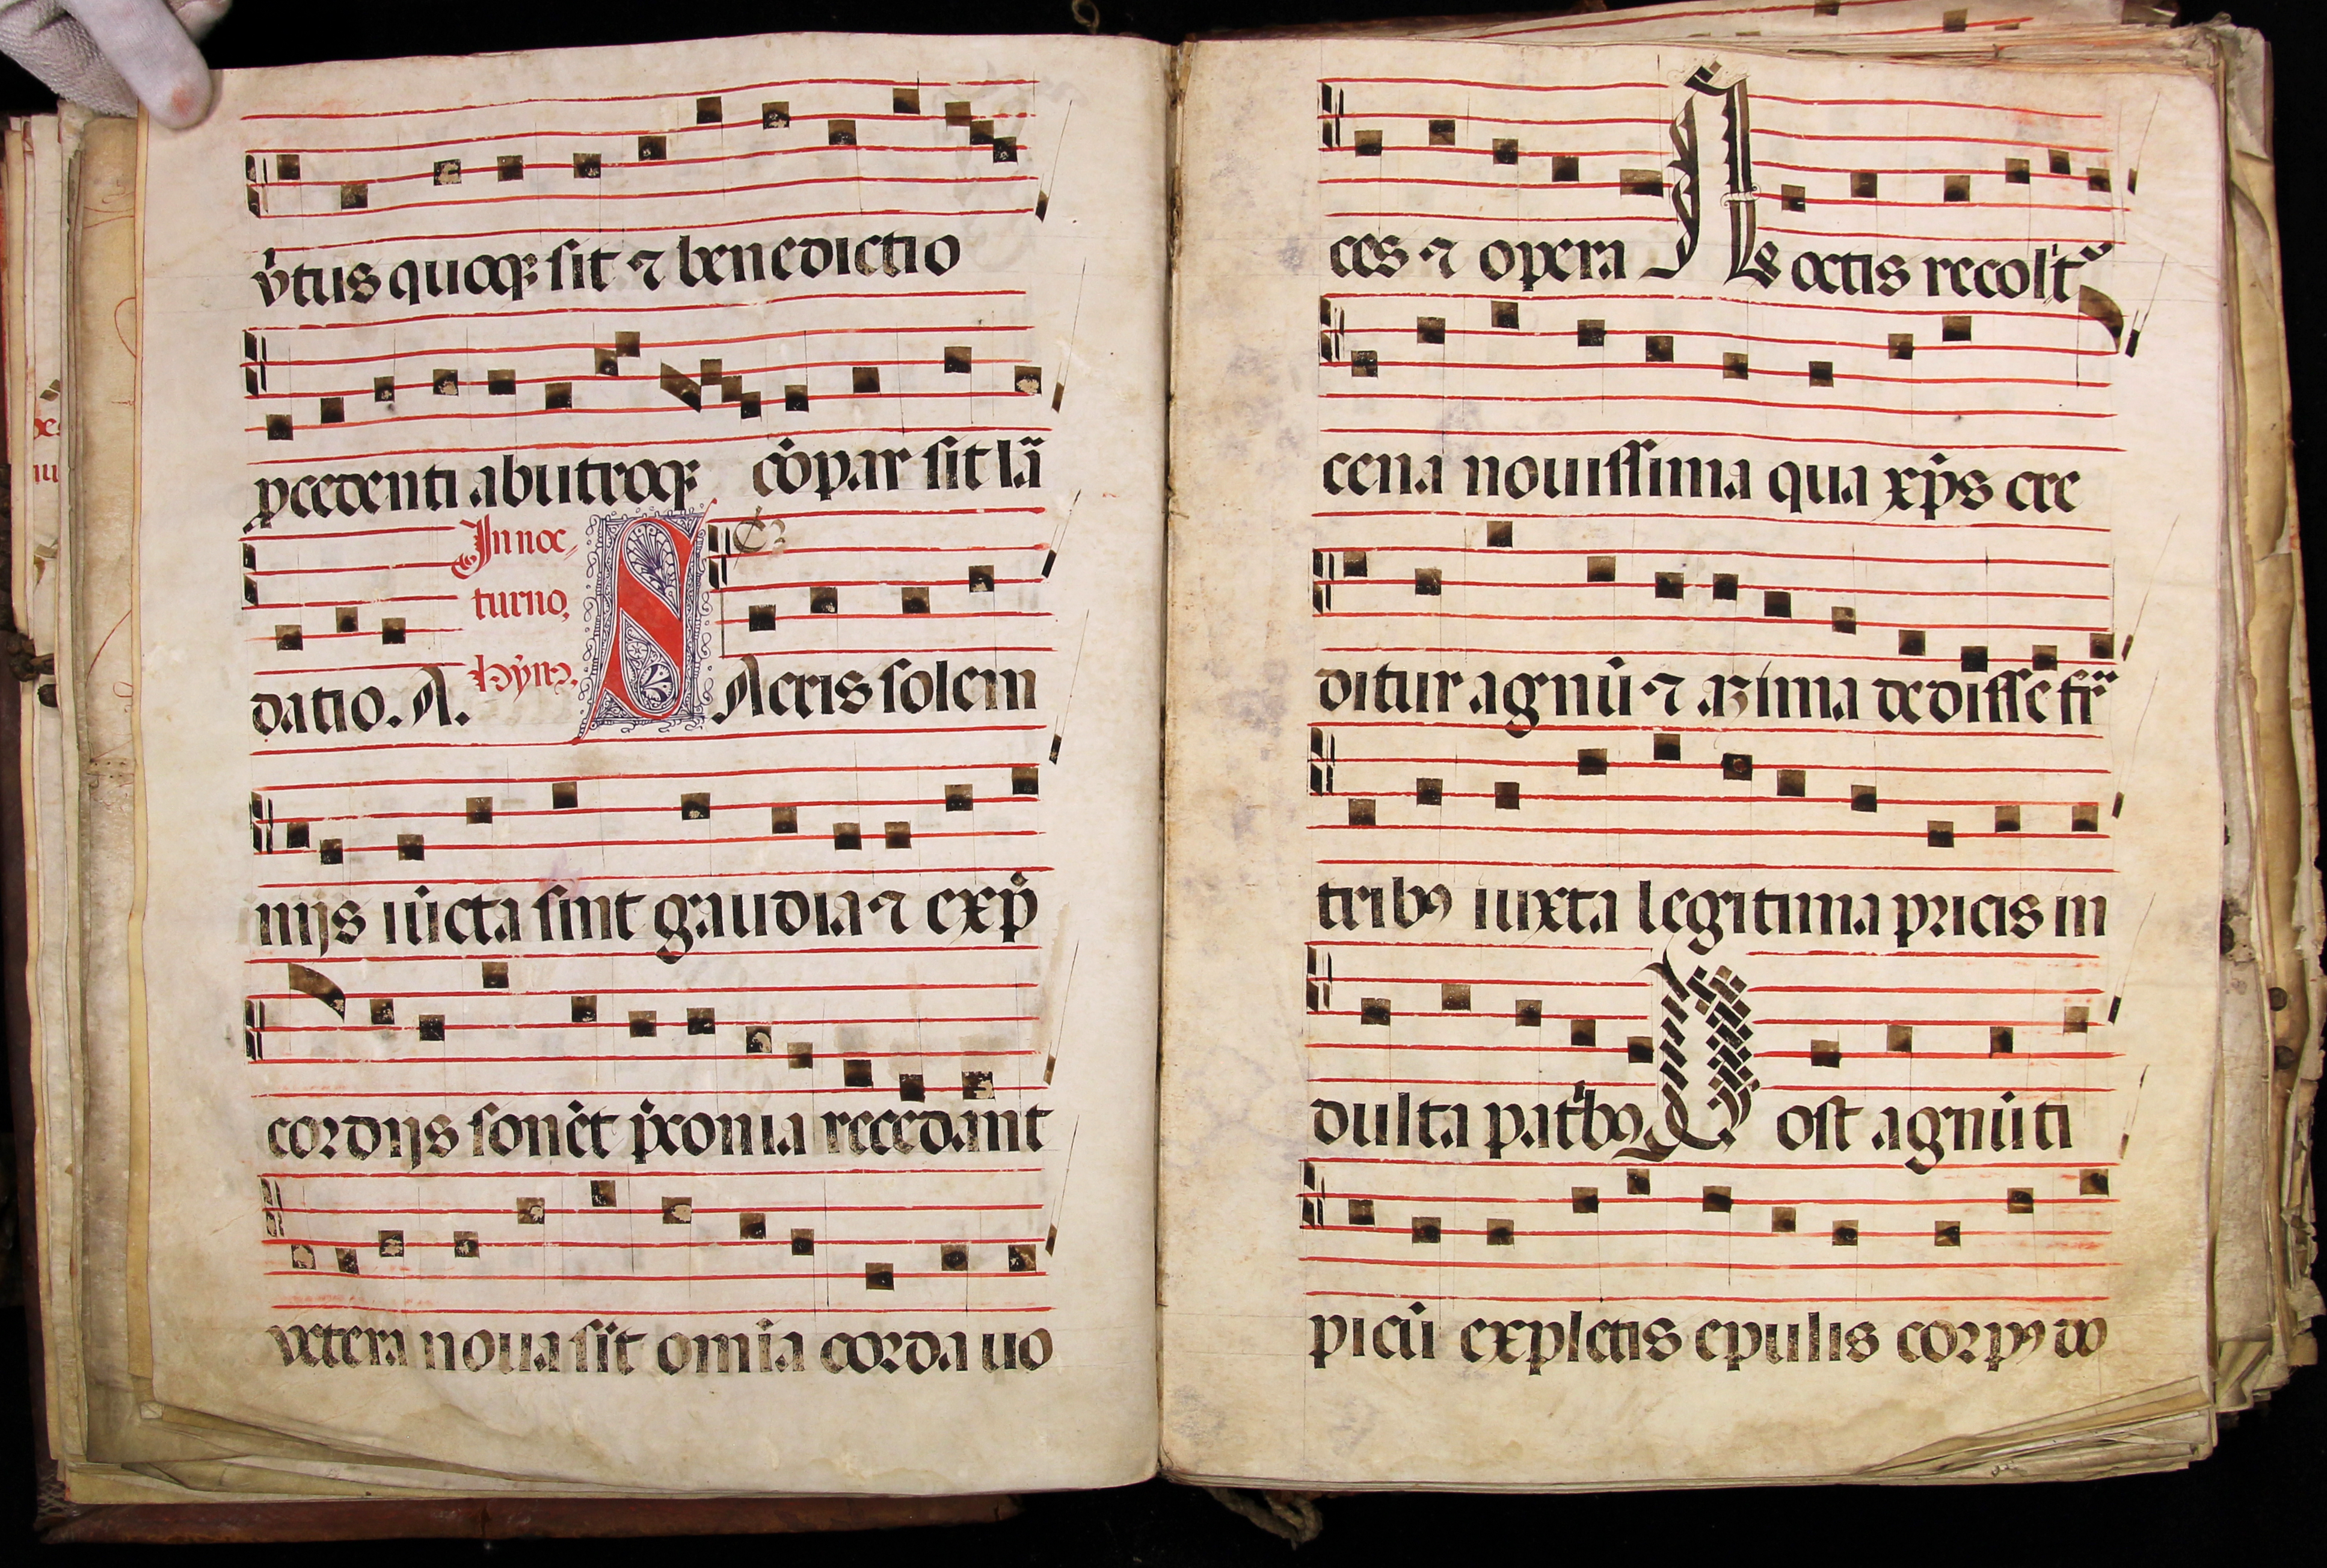 v̇tus quoqꝫ sit ⁊ benedictio
ꝓcedenti ab utroqꝫ cōpar sit lā
datio. A.
In noc-
turno,
hȳnꝰ.
SAcris solem
nijs iūcta sint gaudia ⁊ exp̄
cordijs sonēt p̄conia recedant
vetera noua sīt omīa corda uo
ces ⁊ opera Noctis recolit᷑
cena nouissima qua xp̄s cre
ditur agnū ⁊ azima dedisse fr̄
tribꝰ iuxta legitima priscis in
dulta patribꝰ Post agnū ti
picū expletis epulis corpꝰ do